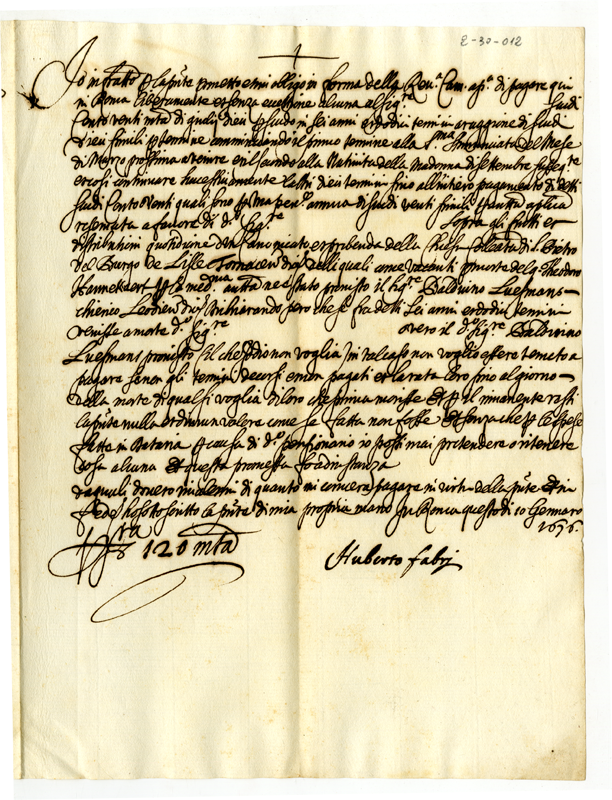 2-30-012
Io infratto p la pnte prometto et mi obligo in forma della Reu.ª Cam. ap.ª di pagare qui
in Roma liberamente et senza eccettione alcuna al Sig.re scudi
Cento venti mta di quali dieci p scudo in sei anni et dodici termini a raggione di scudi
dieci simili p termine comminciando il primo termine alla S.ma Annunciata del Mese
di Marzo prossima a venire et il secondo alla Natiuita della Madonna di settembre susseg.te
et cosi continuare successiuamente l'altri dieci termini sino all'intiero pagamento di detti
scudi Cento venti quali sono p una pen.ne annua di scudi venti simili p autta aplica
reseruata a fauore di d.º Sig.re sopra gli frutti et
distributini quotidiane d'un Canonicato et prebenda della Chiesa Colleg.ta di S. Pietro
del Burgo de Lisle Tornacen dioc. delli quali come vacanti p morte del q. Theodoro
Hannekaert p la med.ma autta ne e stato prouisto il Sig.re Balduino Luesmans
chierico Leodien dioc. dichiarando pero che se fra detti sei anni et dodici termini
venisse a morte d.º Sig.re o vero il d.º Sig.re Balduino
Luesmans prouisto (il che Iddio non voglia) in tal caso non voglio essere tenuto a
pagare se non gli termini decorsi et non pagati et la rata loro sino al giorno
della morte di qualsi voglia di loro che prima morisse et p il rimanente resti
la pnte nulla et di niun valore come se fatta non fosse et senza che p le spese
fatte in Dataria p causa di d.ª pensionario io possi mai pretendere o ritenere
cosa alcuna et questa promessa fo ad instanza
da quali douero ualermi di quanto mi conuerra pagare in virtu della pnte et in
fede ho sottoscritto la pnte di mia propria mano In Roma questo di 10 Gennaro
1676.
120 mta
Huberto fabrj